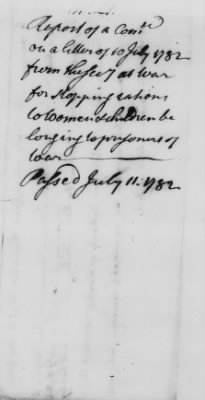 Report of a Comtee
on a letter of 10 July 1782
from the Secy at war
for stopping rations
to women & children be
longing to prisoners of
war
Passed July 11. 1782